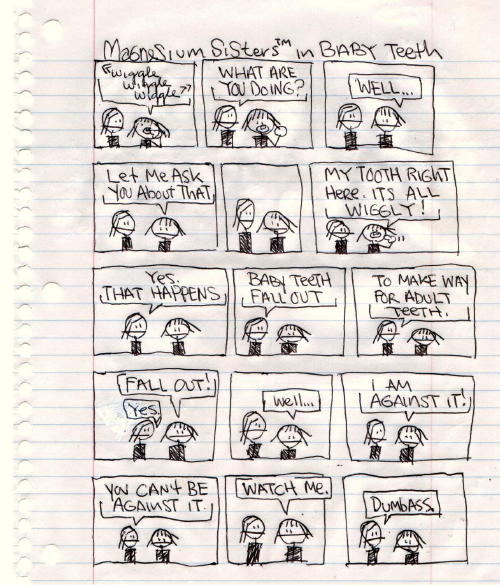 Magnesium Sisters™ in BABY Teeth
"wiggle
wiggle
wiggle"
WHAT ARE
YOU DOING?
WELL...
Let Me Ask
You About That
MY TOOTH RIGHT
Here. ITS ALL
WIGGLY!
Yes.
THAT HAPPENS
BABY TEETH
FALL OUT
TO MAKE WAY
FOR ADULT
TEETH.
FALL OUT!
Yes.
Well...
I AM
AGAINST IT!
YOU CAN'T BE
AGAINST IT.
WATCH Me.
DUMBASS.